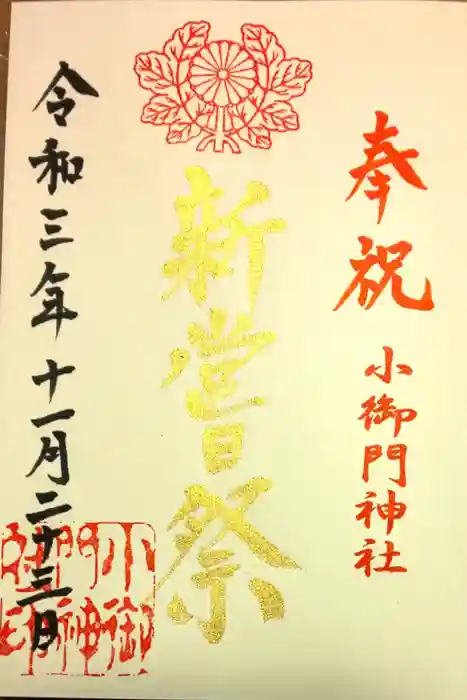 奉祝
小御門神社
新嘗祭
令和三年十一月二十三日
小御
門神